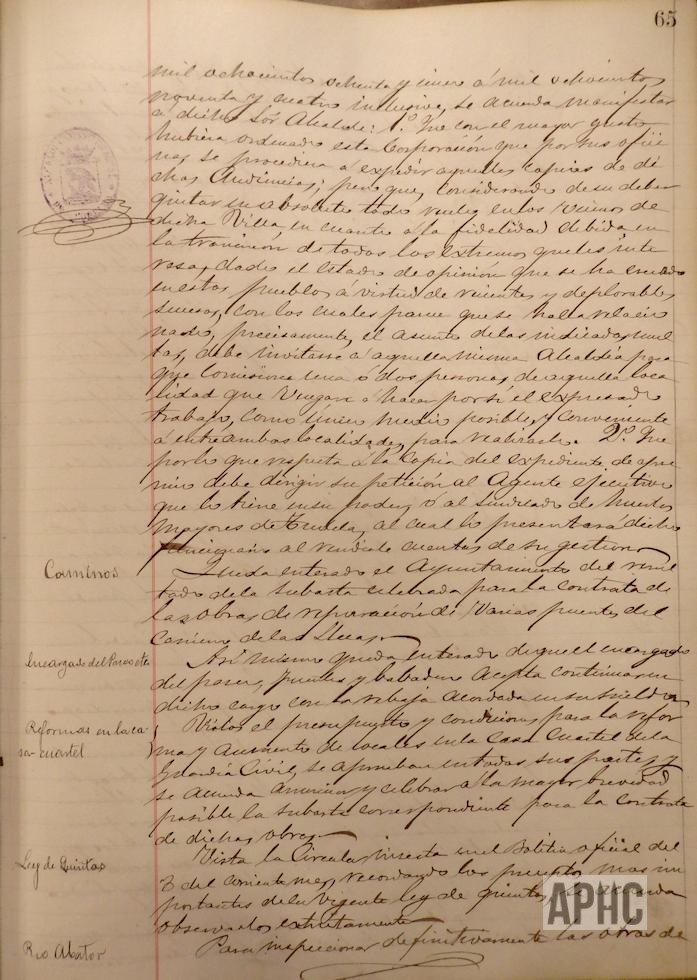 65
mil ochocientos ochenta y cinco á mil ochocientos
noventa y cuatro inclusive, se acuerda manifestar
á dicho Sor Alcalde: 1.º Que con el mayor gusto
hubiera ordenado esta Corporacion que por sus ofici
nas se procediera á expedir aquellas copias de di
chas Audiencias; pero que, considerando de su deber
quitar en absoluto todo recelo en los vecinos de
dicha Villa en cuanto á la fidelidad debida en
la trancision de todos los extremos que les inte
resa, dado el estado de opinion que se ha creado
en estos pueblos á virtud de recientes y deplorables
sucesos, con los cuales parece que se halla relacio
nado, precisamente, el asunto de las indicadas mul
tas, debe invitarse á aquella misma Alcaldía para
que comisione una ó dos personas de aquella loca
lidad que vengan á hacer por sí el expresado
trabajo, como único medio posible y conveniente
á entreambas localidades, para realizarlo. 2.º Que
por lo que respecta á la copia del expediente de apre
mio debe dirigir su peticion al Agente ejecutivo
que lo tiene en su poder, ó al Sindicado de Huertas
Mayores de Tudela, al cual lo presentará dicho
funcionario al rendirle cuentas de su gestion
Caminos
Queda enterado el Ayuntamiento del resul
tado de la subasta celebrada para la contrata de
las obras de reparacion de varios puentes del
Camino de las
Encargado del Paseo etc.
Así mismo queda enterado de que el encargado
del paseo, puentes y
acepta continuar en
dicho cargo con la rebaja acordada en su sueldo
Reformas en la ca
sa-cuartel
Vistos el presupuesto y condiciones para la refor
ma y aumento de locales en la Casa Cuartel de la
Guardia Civil, se aprueban en todas sus partes, y
se acuerda anunciar y celebrar á la mayor brevedad
posible la subasta correspondiente para la contrata
de dichas obras
Ley de Quintas
Vista la Circular inserta en el Boletin oficial del
7 del corriente mes, recordando los preceptos mas im
portantes de la vigente ley de quintas, se acuerda
observarlos extrictamente
Rio
Para inspeccionar definitivamente las obras de
APHC